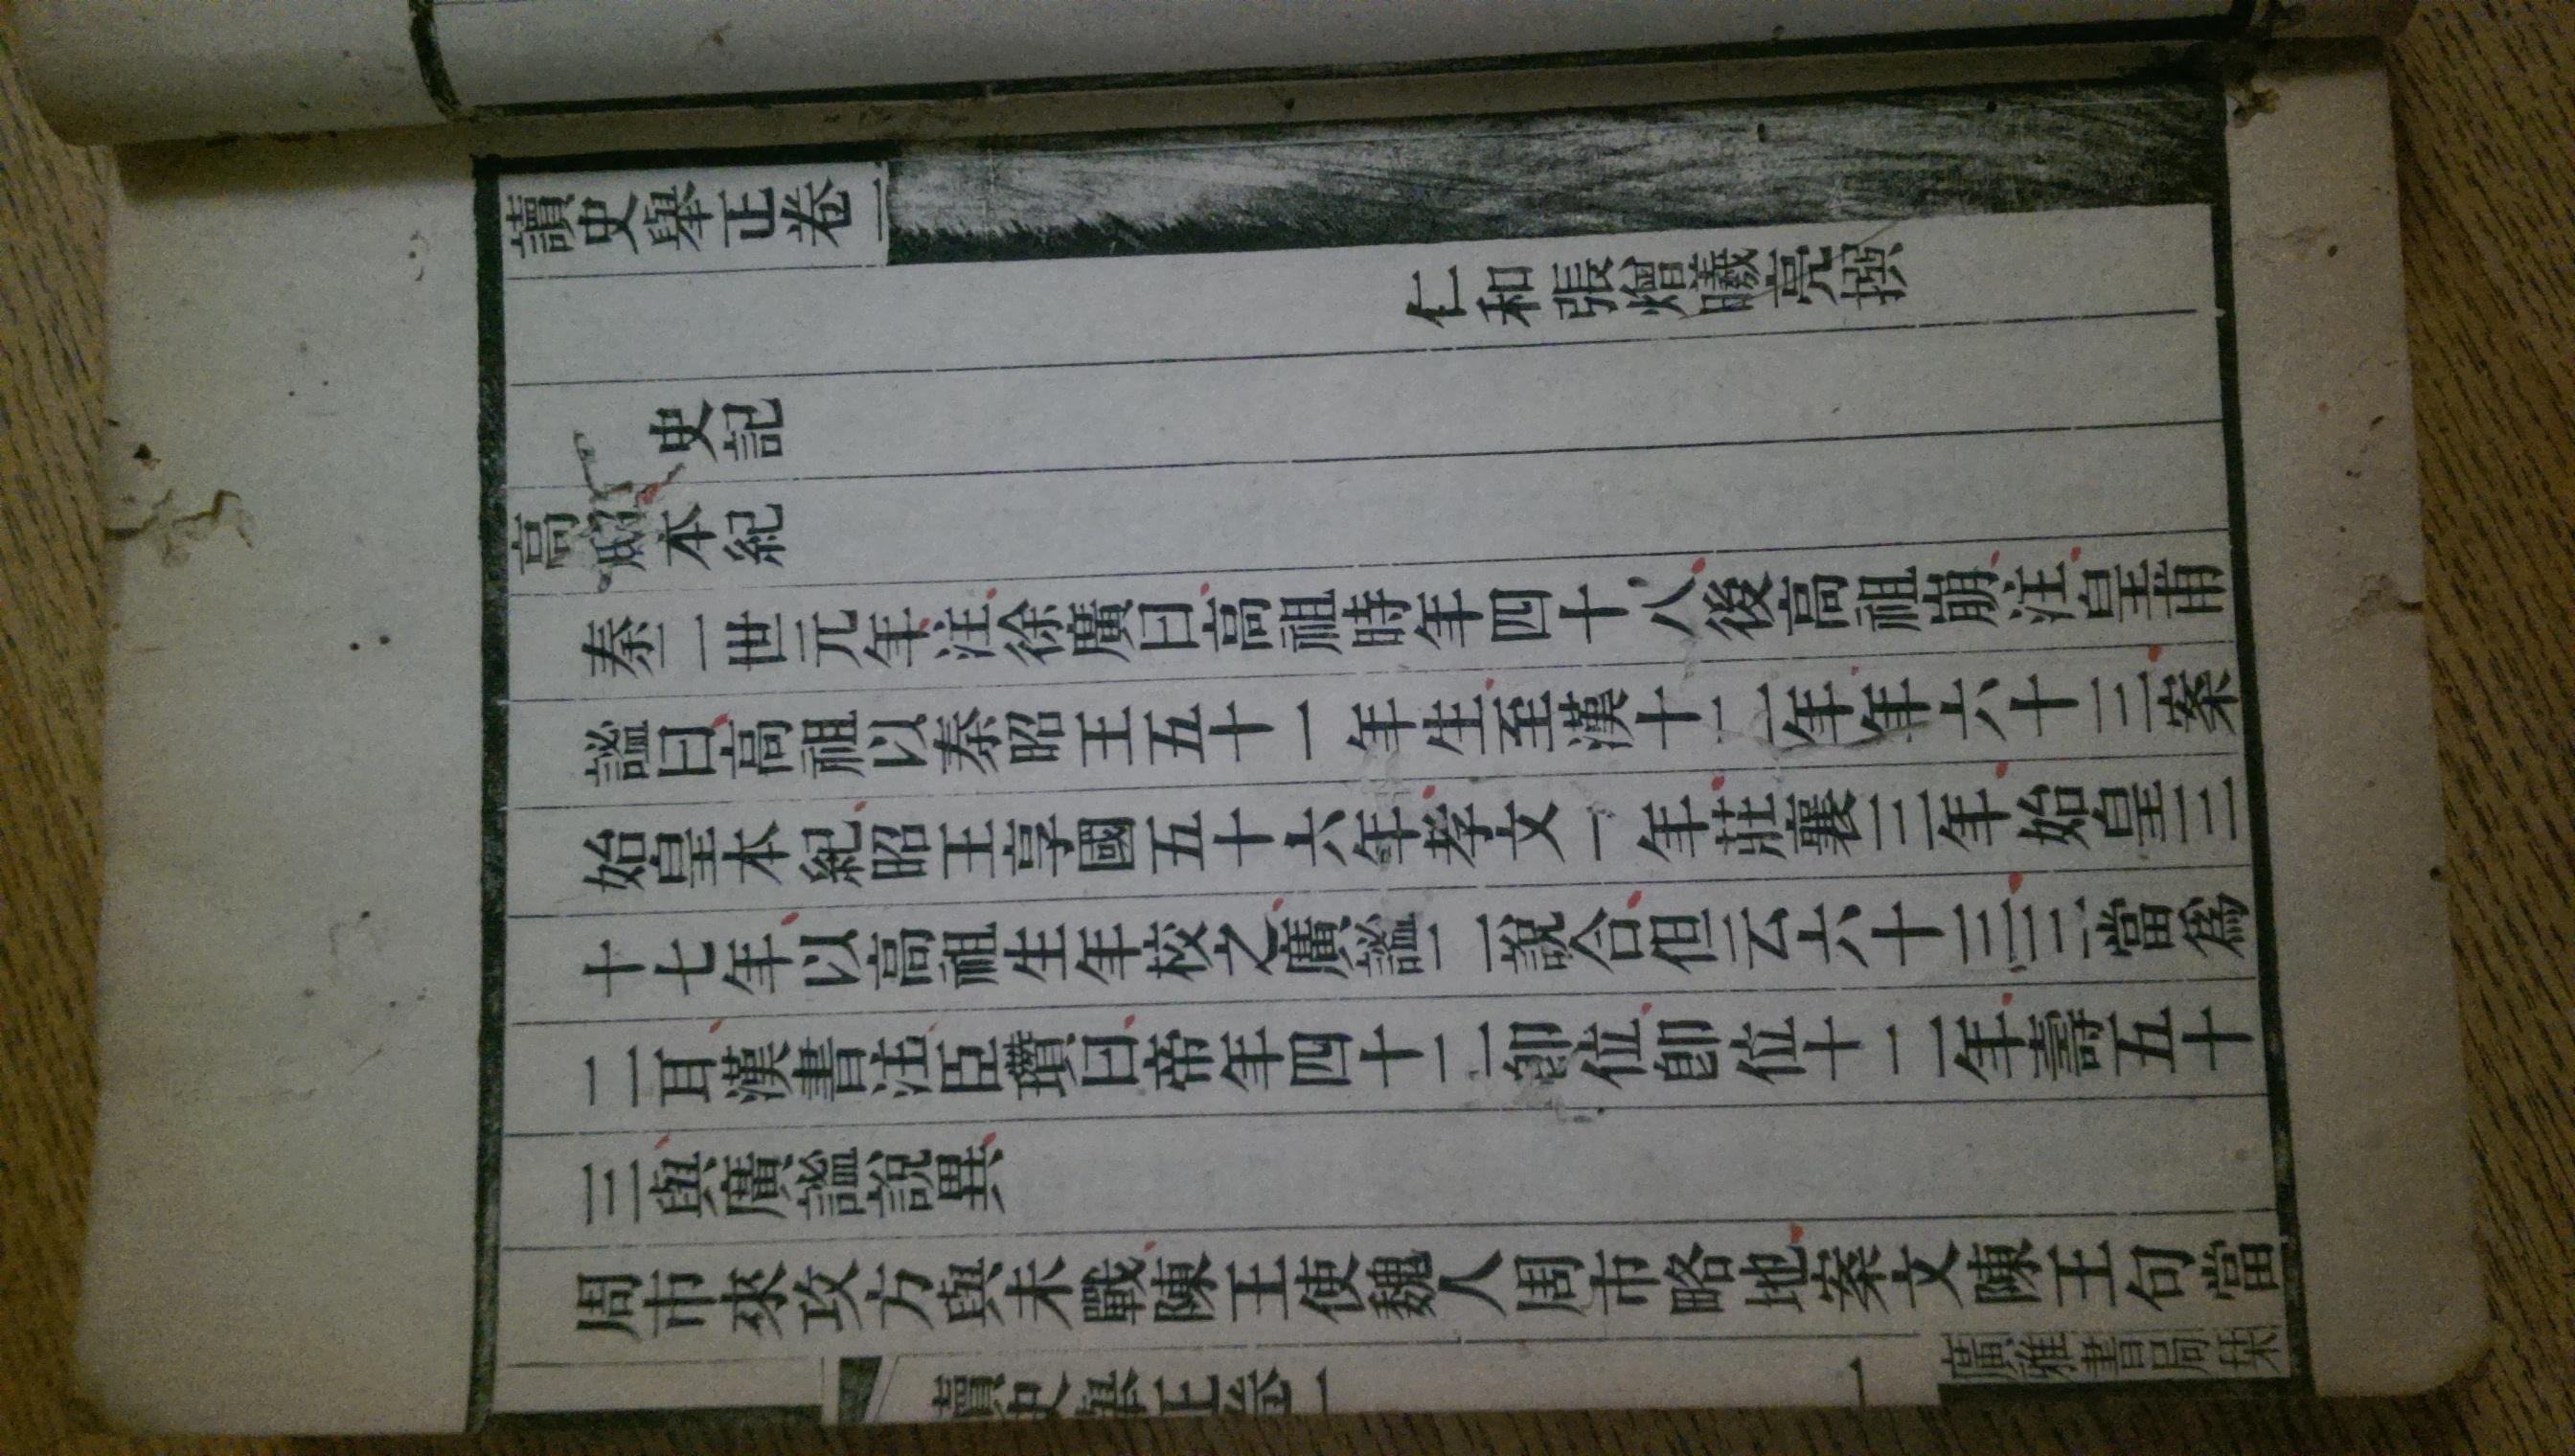 讀史舉正卷一
仁和張熷曦亮撰
史記
高祖本紀
秦二世元年注徐廣曰高祖時年四十八後高祖崩注皇甫
謐曰高祖以秦昭王五十一年生至漢十二年年六十三案
始皇本紀昭王享國五十六年孝文一年莊襄三年始皇三
十七年以高祖生年校之廣謐二說合但云六十三三當為
二耳漢書注臣瓚曰帝年四十二卽位卽位十二年壽五十
三與廣謐說異
周市來攻方與未戰陳王使魏人周市略地案文陳王句當
讀史舉正卷一
一
廣雅書局栞